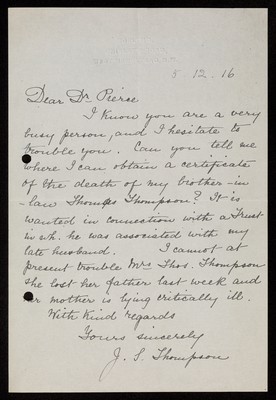 5 12 - 16
Dear Dr Pierce
I know you are a very
busy person, and I hesitate to
trouble you. Can you tell me
where I can obtain a certificate
of the death of my brother-in
-law Thomas Thompson? It is
wanted in connection with a Trust
in wh. he was associated with my
late husband. I cannot at
present trouble Mrs Thos. Thompson
she lost her father last week and
her mother is lying critically ill.
With kind regards
Yours sincerely
J. S. Thompson